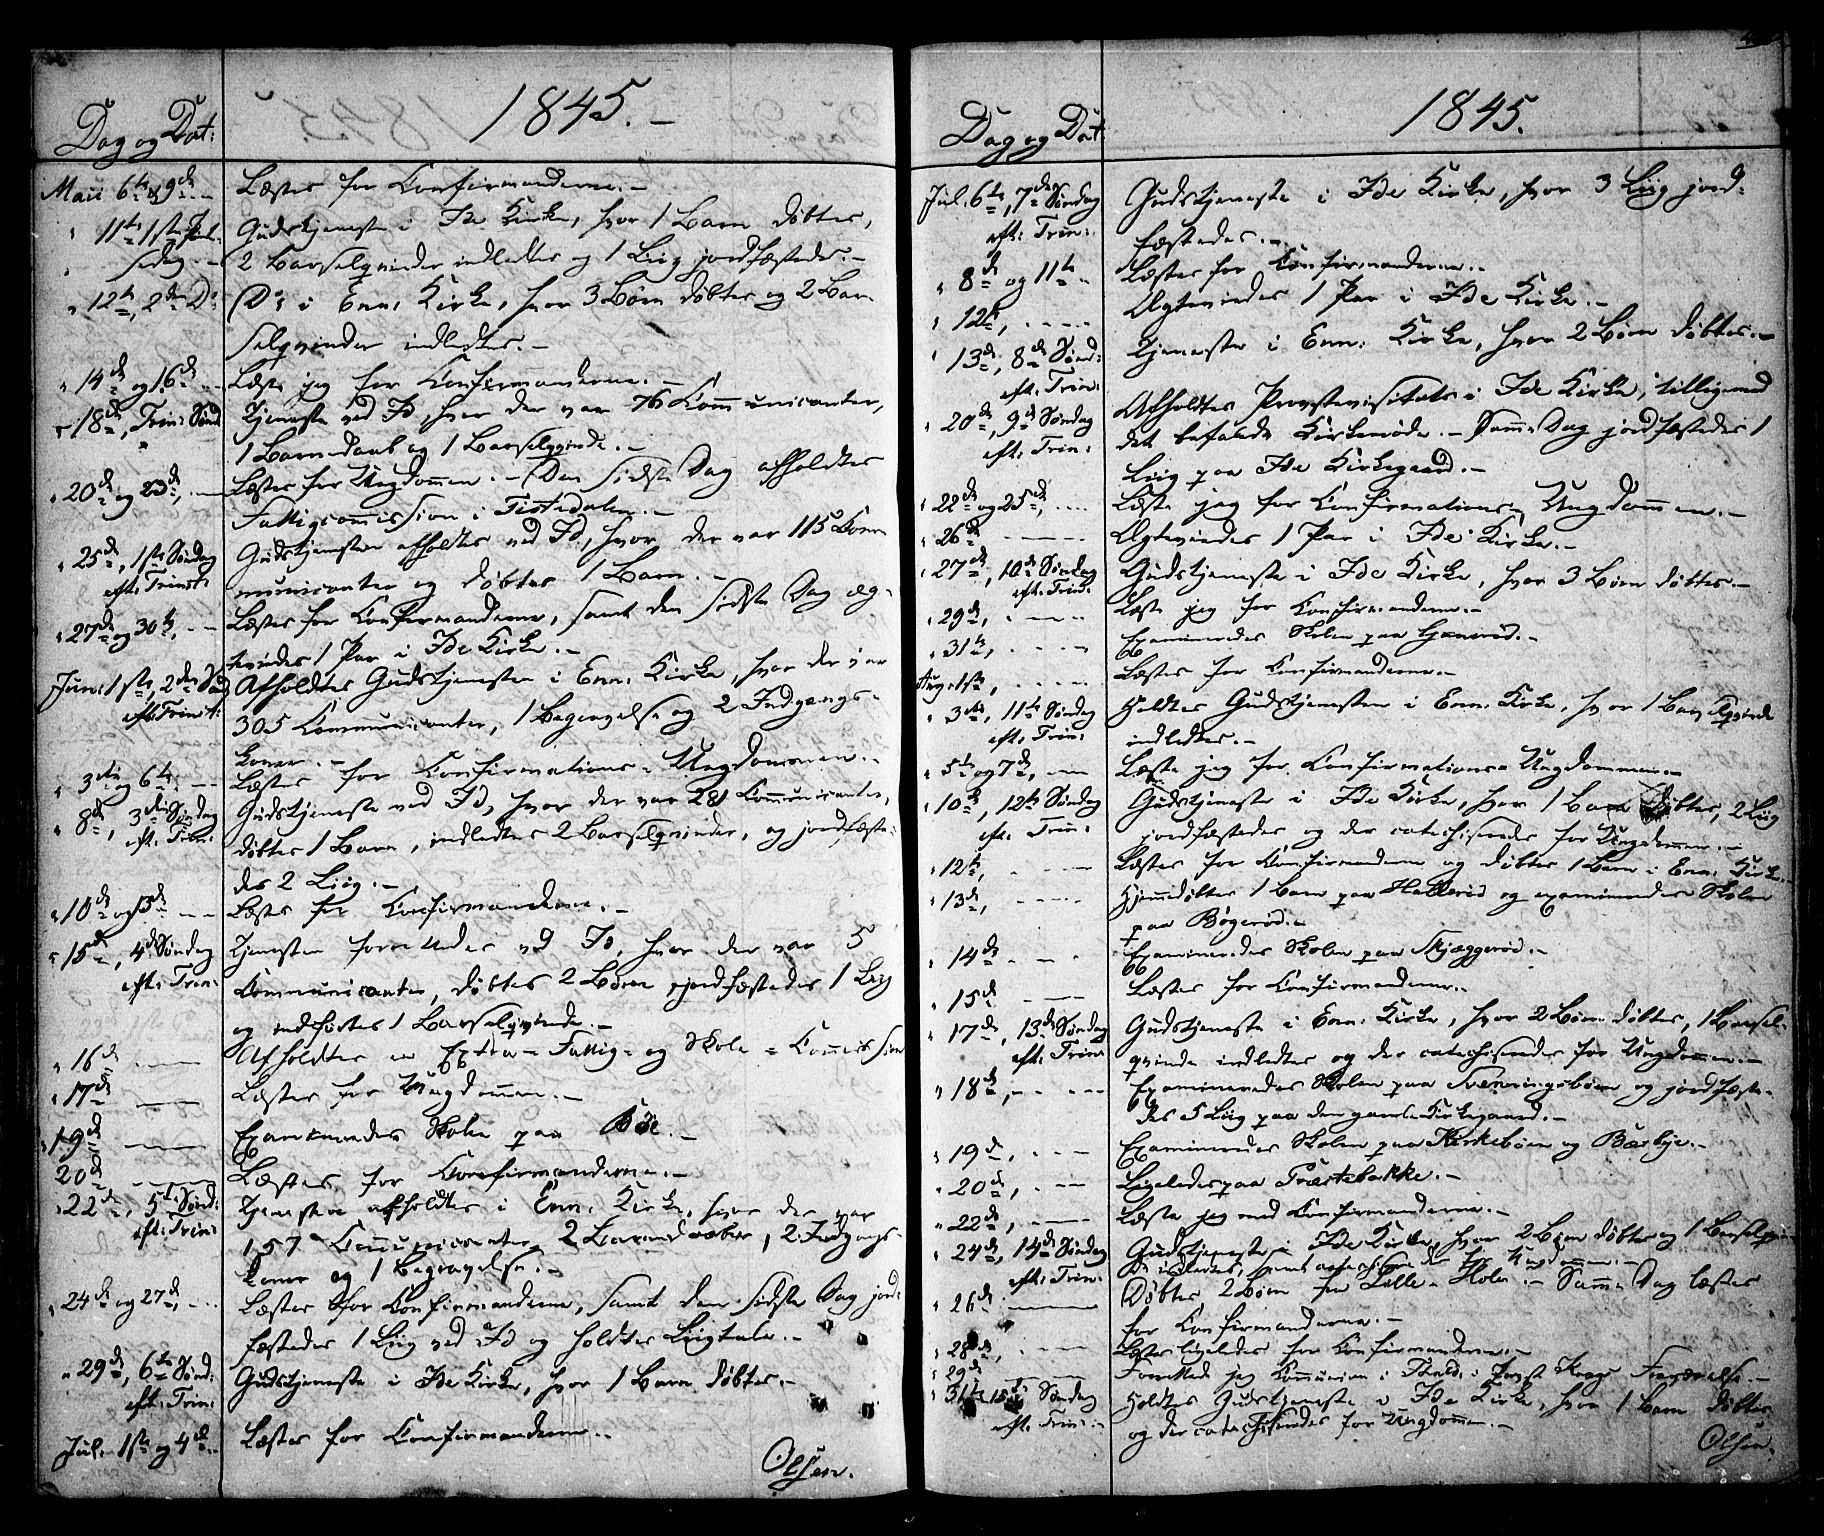 Dag og Dat:
1845.
Maii 6te & 9de Læstes for Confirmanderne.
" 11te 1ste Gudstjeneste i Ide Kirke, hvor 1 Barn døbtes,
2 Barselqvinder indledtes og 1 Liig jordfæstedes.
" 12te, 2den Do Do i Enn: Kirke, hvor 3 Børn døbtes og 2 Bar-
selqvinder indledtes.
" 14de og 16de Læste jeg for Confirmanderne.
" 18de, Trin: Sønd Tjeneste ved Id, hvor der var 76 Communicanter,
1 Barnedaab og 1 Barselqvinde.
" 20de og 23de, Læstes for Ungdommen. Den sidste Dag afholdtes
Fattigcommission i Tistedalen.
" 25de, 1ste Søndag Gudstjenesten afholdtes ved Id, hvor der var 115 Com-
eft: Trinit: municanter og døbtes 1 Barn.
" 27de og 30te, Læstes for Confirmanderne, samt den sidste Dag æg-
tevies 1 Par i Ide Kirke.
Jun: 1ste, 2den Sønd Afholdtes Gudstjenesten i Enn: Kirke, hvor der var
eft: Trinit: 305 Communicanter, 1 Begravelse og 2 Indgangs-
koner.
" 3die og 6te Læstes for Confirmations-Ungdommen.
" 8de, 3die Søndag Gudstjeneste ved Id, hvor der var 281 Communicanter,
eft: Trin: døbtes 1 Barn, indledtes 2 Barselqvinder, og jordfæste-
des 2 Liig.
" 10de og 13de Læstes for Confirmanderne.
" 15de, 4de Søndag Tjenesten forrettedes ved Id, hvor der var 5
eft: Trin: Communicanter, døbtes 2 Børn, jordfæstedes 1 Liig
og indførtes 1 Barselqvinde.
" 16de Afholdtes en Extra-Fattig- og Skole-Commission
" 17de Læstes for Ungdommen.
" 19de Examineredes Skolen paa Bøe.
20de Læstes for Confirmanderne.
" 22de, 5te Sønd: Tjenesten afholdtes i Enn: Kirke, hvor der var
eft: Trin: 157 Communicanter, 2 Barnedaaber, 2 Indgangs-
koner og 1 Begravelse.
" 24de og 27de, Læstes for Confirmanderne, samt den sidste Dag jord-
fæstedes 1 Liig ved Id og holdtes Liigtale.
" 29de, 6te Sønd: Gudstjeneste i Ide Kirke, hvor 1 Barn døbtes.
eft: Trin:
Jul: 1ste og 4de Læstes for Confirmanderne.
Olsen.
Dag og Dat:
1845.
Jul. 6te, 7de Søndag Gudstjeneste i Ide Kirke, hvor 3 Liig jord-
eft: Trin: fæstedes.
" 8de og 11te Læstes for Confirmanderne.
" 12te, Ægteviedes 1 Par i Ide Kirke.
" 13de, 8de Sønd: Tjeneste i Enn: Kirke, hvor 2 Børn døbtes.
eft: Trin:
" 20de, 9de Søndag Afholdtes Provstevisitats i Ide Kirke, tilligemed
eft: Trin: det befalede Kirkemøde. Samme Dag jordfæstedes 1
Liig paa Ide Kirkegaard.
" 22de og 25de, Læste jeg for Confirmations-Ungdommen.
" 26de Ægteviedes 1 Par i Ide Kirke.
" 27de, 10de Søndag Gudstjeneste i Ide Kirke, hvor 3 Børn døbtes.
eft: Trin:
" 29de, Læste jeg for Confirmanderne.
" 31te, Examineredes Skolen paa
Aug: 1ste, Læstes for Confirmanderne.
" 3die, 11te Søndag Holdtes Gudstjenesten i Enn: Kirke, hvor 1 Barselqvinde
eft: Trin: indledtes.
" 5te og 7de, Læste jeg for Confirmations-Ungdommen.
" 10de, 12te Søndag Gudstjeneste i Ide Kirke, hvor 1 Barn døbtes, 2 Liig
eft: Trin: jordfæstedes og der catechiseredes for Ungdommen.
" 12te, Læstes for Confirmanderne og døbtes 1 Barn i Enn: Kirke.
" 13de, Hjemmedøbtes 1 Barn paa Hallerød og examineredes Skolen
paa Bøgerød.
" 14de Examineredes Skolen paa Skjæggerød.
" 15de Læstes for Confirmanderne.
" 17de, 13de Søndag Gudstjeneste i Enn: Kirke, hvor 2 Børn døbtes, 1 Barsel-
eft: Trin: qvinde indledtes og der catechiseredes for Ungdommen.
" 18de, Examineredes Skolen paa Svenningsbøen og jordfæste-
des 5 Liig paa den gamle Kirkegaard.
" 19de, Examineredes Skolen paa Kirkebøen og Bærbye.
" 20de, Ligeledes paa Præstebakke.
" 22de, Læste jeg med Confirmanderne.
" 24de, 14de Søndag Gudstjeneste i Ide Kirke, hvor 2 Børn døbtes og 1 Barselqvin-
eft: Trin: de indledtes, samt catechiseredes for Ungdommen.
" 26de Døbtes 2 Børn fra Lille-Holm. Samme Dag læstes
for Confirmanderne.
" 28de, Læstes ligeledes for Confirmanderne.
" 29de Forrettede jeg Communion i
" 31te, 15de Søndag Holdtes Gudstjeneste i Ide Kirke, hvor 1 Barn døbtes
eft: Trin: og der catechiseredes for Ungdommen.
Olsen.